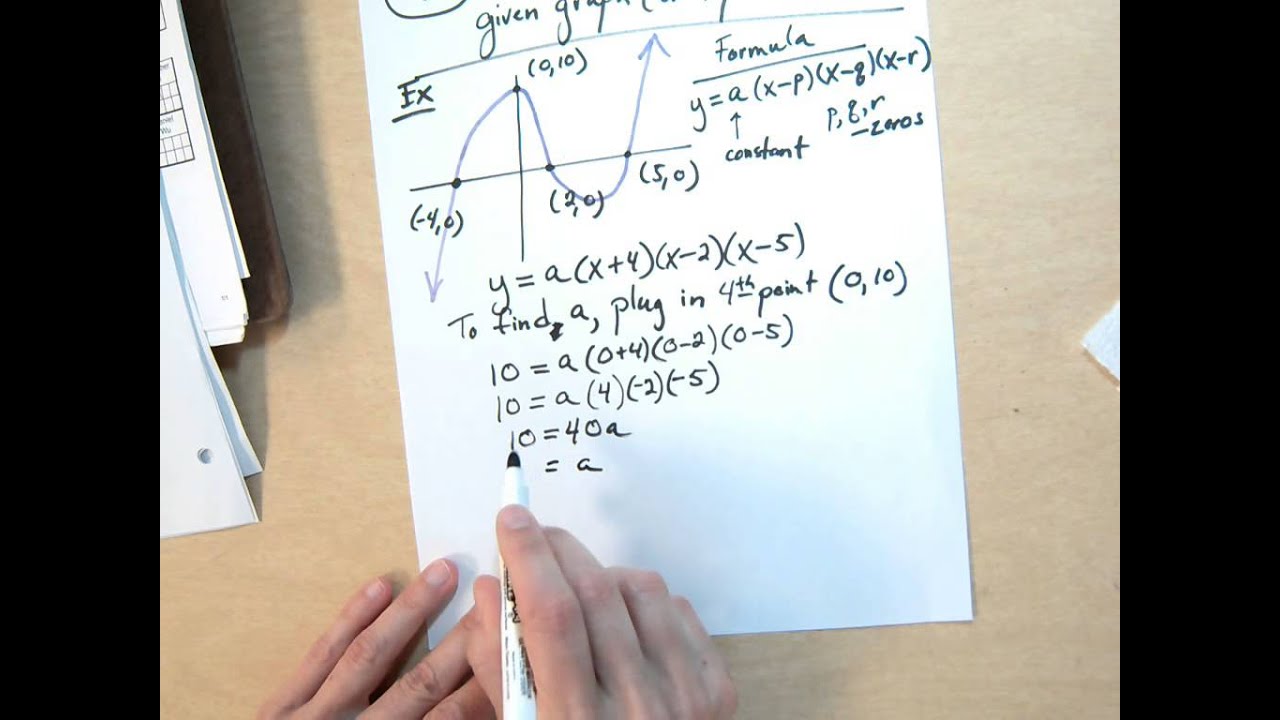 given graph
Ex
(0,10)
Formula
y = a (x-p)(x-q)(x-r)
↑
constant
p, q, r
- zeros
(-4,0)
(2,0)
(5,0)
y = a (x+4)(x-2)(x-5)
To find a, plug in 4th point (0,10)
10 = a (0+4)(0-2)(0-5)
10 = a (4)(-2)(-5)
10 = 40a
= a